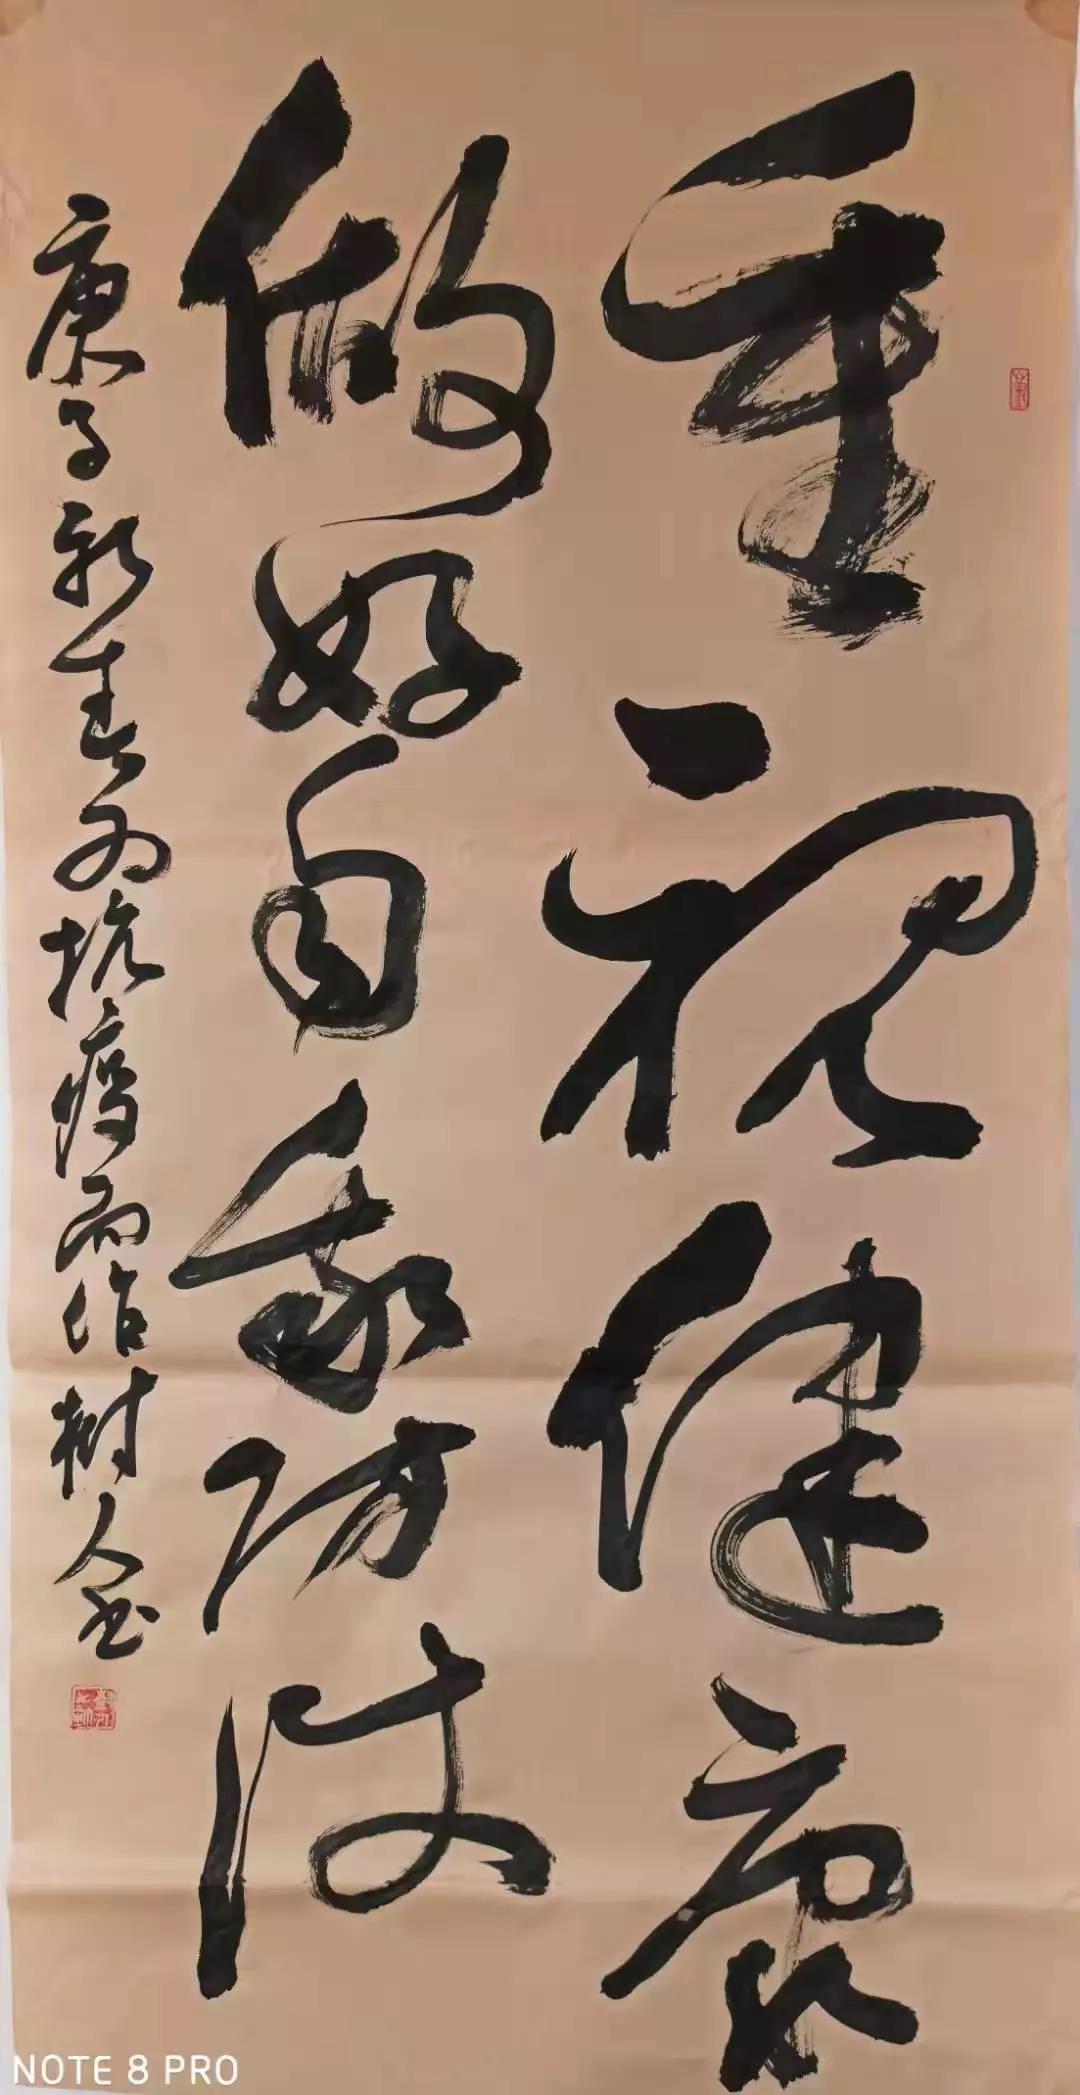 重视健康
做好自我防范
庚子新春为抗疫而作树人书
NOTE 8 PRO